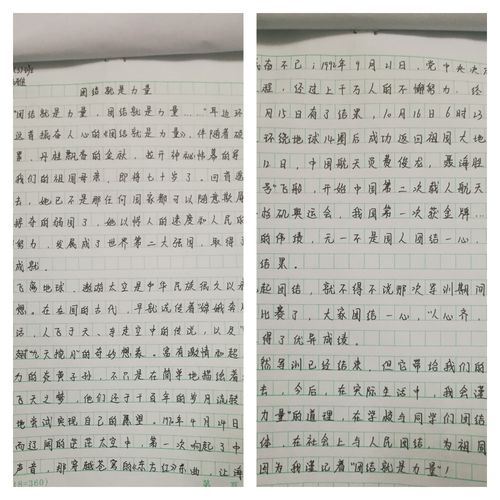 团结就是力量
"团结就是力量，团结就是力量…"耳边环
这首振奋人心的《团结就是力量》，伴随着硕
果、丹桂飘香的金秋，拉开神秘帷幕的
我们的祖国母亲，即将七十岁了。回首
去，她已不是那任何国家都可以随意欺辱
的弱国了，她以惊人的速度和人民的
努力，发展成了世界第二大强国，取得了
成就。
飞离地球、遨游太空是中华民族很久以
想。在在国的古代，早就流传着"嫦娥奔
话，人飞于天、车走空中的传说，以及"
"九天揽月"的奇妙想象。富有激情和超
力的炎黄子孙，不只是在简单地描绘着
飞天之梦，他们还于千百年的岁月流转
地尝试实现自己的愿望。1970年4月24日
而辽阔的茫茫太空中，第一次响起了中
声音，那穿越苍穹的《东方红》乐曲，让
(18=360)
第 页
不已；1992年9月21日，党中央决定
程，经过上千万人的不懈努力，经
月15日有了结果，10月16日6时23
环绕地球14圈后成功返回祖国大地
12日，中国航天员费俊龙、聂海胜
号"飞船，开始中国第二次载人航天
矶奥运会，我国第一次获金牌…
的伟绩，无一不是国人团结一心，
结果。
起团结，就不得不说那次军训期间
比赛了，大家团结一心，"人心齐，
得了优异成绩。
然军训已经结束，但它带给我们的
去，今后，在实际生活中，我会谨
力量"的道理，在学校与同学们团结
体，在社会上与人民团结，为祖国
因为我谨记着"团结就是力量"！